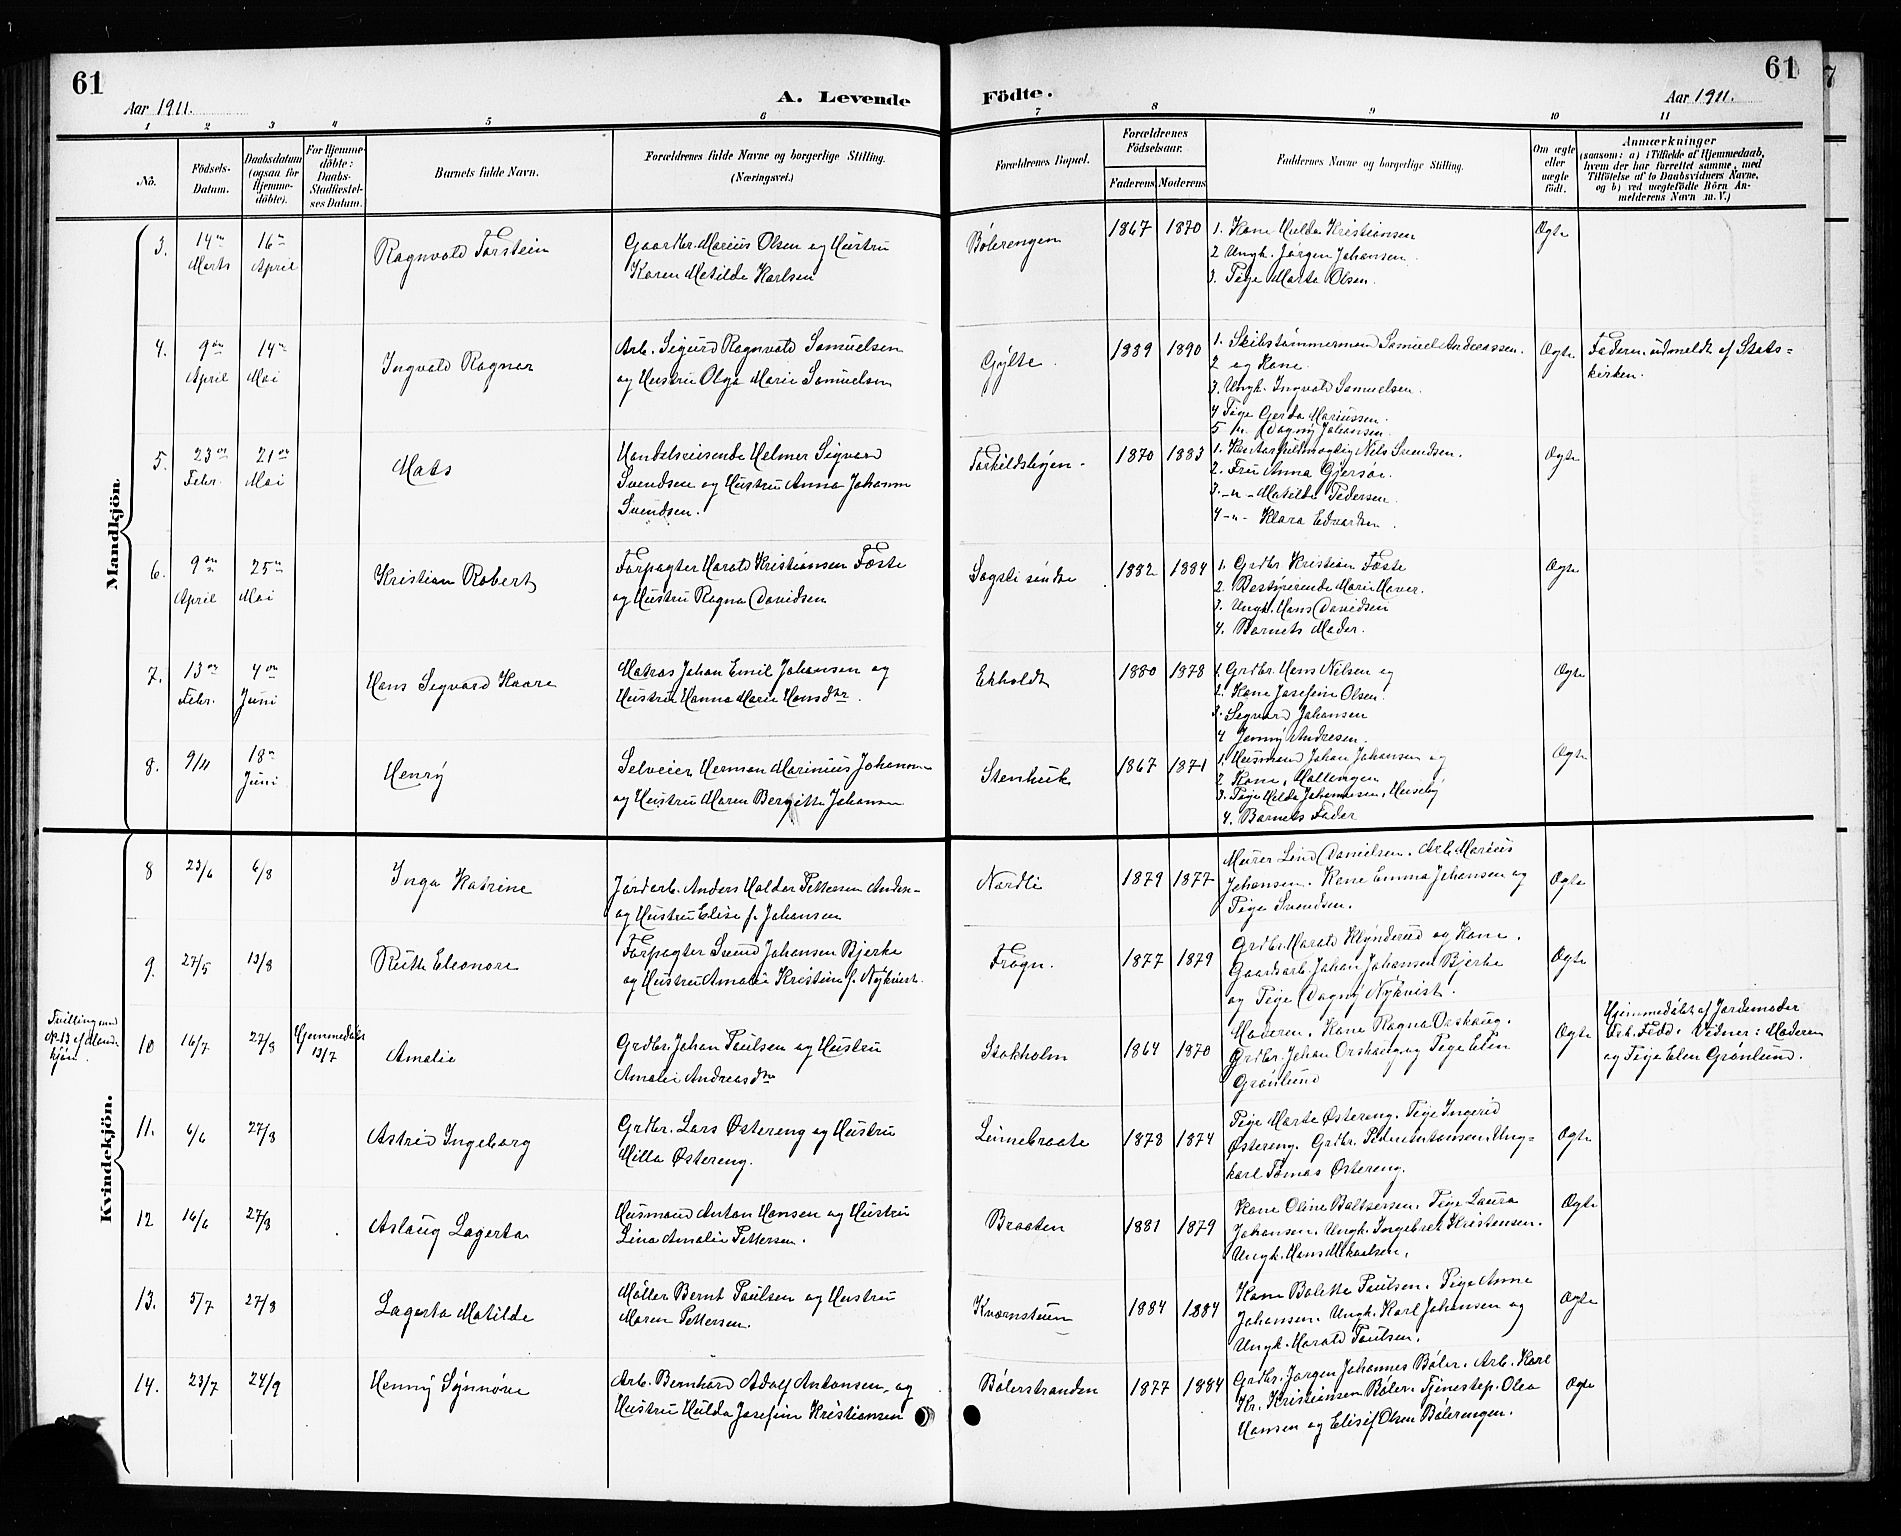 61
61
Aar 1911.
A. Levende
Födte.
Aar 1911.
1 2 3 4 5 6 7 8 9 10 11
No.
Födsels-
Datum.
Daabsdatum
(ogsaa for
Hjemme-
döbte).
For Hjemme-
döbte:
Daabs-
Stadfæstel-
ses Datum.
Barnets fulde Navn.
Forældrenes fulde Navne og borgerlige Stilling.
(Næringsvei.)
Forældrenes Bopæl.
Forældrenes
Födselsaar.
Faderens
Moderens
Faddernes Navne og borgerlige Stilling.
Om ægte
eller
uægte
födt.
Anmærkninger
(saasom: a) i Tilfælde af Hjemmedaab,
hvem der har forrettet samme, med
Tilföielse af to Daabsvidners Navne,
og b) ved uægtefödte Börn An-
melderens Navn m. V.)
Mandkjön
3.
14de Marts
16de April
Ragnvald Torstein
Gaardbr. Marius Olsen og Hustru
Karen Matilde Karlsen
Bölerengen
1867 1870
1. Kone Hulda Kristiansen
2 Ungk. Jörgen Johansen.
3. Pige Marta Olsen.
Ægte
4.
9de April
14de Mai
Ingvald Ragnar
Arb. Sigurd Ragnvald Samuelsen
og Hustru Olga Marie Samuelsen
Gylte.
1889 1890
1. Skibstømmermand Samuel Andreassen.
2 og Kone.
3. Ungk. Ingvald Samuelsen.
4 Pige Gerda Mariussen.
5 " Dagny Johansen
Ægte
Faderen udmeldt af Stats-
kirken.
5.
23de Febr.
21de Mai
Mats
Handelsreisende Helmer Sigvard
Svendsen og Hustru Anna Johanne
Svendsen.
Torkildsbyen.
1870 1883
1. Kontorfuldmægtig Nils Svendsen.
2. Fru Anna Gjersøe.
3. -"- Matilde Pedersen.
4 -"- Klara Edvardsen.
Ægte
6.
9de April
25de Mai
Kristian Robert
Forpagter Harald Kristiansen Foste
og Hustru Ragna Davidsen
Sogsti søndre
1882 1884
1. Grdbr. Kristian Foste
2. Bestyrerinde Marie Haver.
3. Ungk. Hans Davidsen
4. Barnets Moder.
Ægte
7.
13de Febr.
4de Juni
Hans Sigvard Kaare
Matros Johan Emil Johansen og
Hustru Hanna Marie Hansdtr.
Ekholdt
1880 1878
1. Grdbr. Hans Nilsen og
2. Kone Josefine Olsen.
3. Sigvard Johansen
4 Jenny Andresen.
Ægte
8.
9/4
18de Juni
Henry
Selveier Herman Marinius Johansen
og Hustru Maren Bergitte Johansen
Stenhuk
1867 1871
1. Husmand Johan Johansen og
2 Kone, Hallevigen
3. Pige Hilda Johannesen, Huseby
4. Barnets Fader
Ægte
Kvindekjön.
8
23/6
6/8
Inga Katrine
Jordarb. Anders Haldor Pettersen
og Hustru Elise f. Johansen
Nordli
1879 1877
Murer Lind Danielsen. Arb. Marius
Johansen. Kone Emma Johansen og
Pige Svendsen.
Ægte
9.
27/5
13/8
Ruth Eleonore
Forpagter Svend Johansen Bjerke
og Hustru Amalie Kristine f. Nykvist.
Frogn.
1877 1879
Grdbr. Harald Klynderud og Kone.
Gaardsarb. Johan Johansen Bjerke
og Pige Dagny Nykvist.
Ægte
Tvilling med
No 13 af Mand-
kjön.
10
16/7
27/8
Hjemmedøbt
13/7
Amalie
Grdbr. Johan Paulsen og Hustru
Amalie Andreasdtr
Stokholm
1864 1870
Moderen. Kone Ragna Orshaug.
Grdbr. Johan Orshaug og Pige Elen
Grønlund
Ægte
Hjemmedøbt af Jordemoder
Vidner: Moderen
og Pige Elen Grønlund.
11.
6/6
27/8
Astrid Ingeborg
Grdbr. Lars Østereng og Hustru
Milla Østereng.
Linnebraate
1873 1874
Pige Marte Østereng. Pige Ingerid
Østereng. Grdbr. Ung-
karl Tomas Østereng.
Ægte
12
16/6
27/8
Aslaug Lagerta
Husmand Anton Hansen og Hustru
Lina Amalie Pettersen.
Braaten
1881 1879
Kone Oline Baltsersen. Pige Laura
Johansen. Ungk. Ingebret Kristensen.
Ungk. Hans Mikaelsen.
Ægte
13.
5/7
27/8
Lagerta Matilde
Møller Bernt Paulsen og Hustru
Maren Pettersen.
Kværnstuen
1884 1884
Kone Bolette Paulsen. Pige Anne
Johansen. Ungk. Karl Johansen og
Ungk. Harald Paulsen.
Ægte
14.
23/7
24/9
Henny Synnøve
Arb. Bernhard Adolf Antonsen og
Hustru Hulda Josefine Kristiansen
Bölerstranden
1877 1884
Grdbr. Jørgen Johannes Bøler. Arb. Karl
Kr. Kristiansen Bøler. Tjenestep. Olea
Hansen og Elisif Olsen Bölerengen.
Ægte